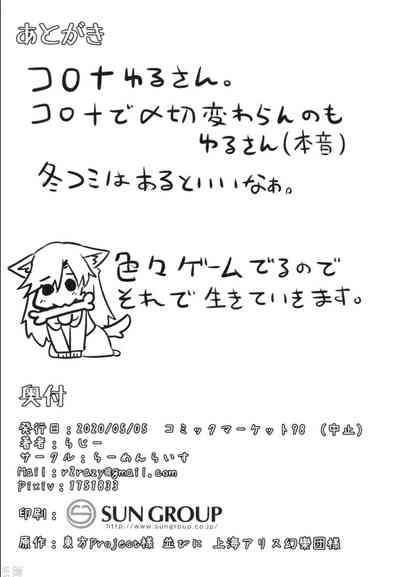 あとがき
コロナゆるさん。
コロナで〆切変わらんのも
ゆるさん(本音)
冬コミはあるといいなぁ。
色々ゲームでるので
それで生きていきます。
奥付
発行日：2020/05/05 コミックマーケット98 (中止)
著者：らじー
サークル：らーめんらいす
Mail：r2razy@gmail.com
Pixiv：1751833
印刷：SUN GROUP
http://www.sungroup.co.jp/
原作：東方Project様 並びに 上海アリス幻樂団様